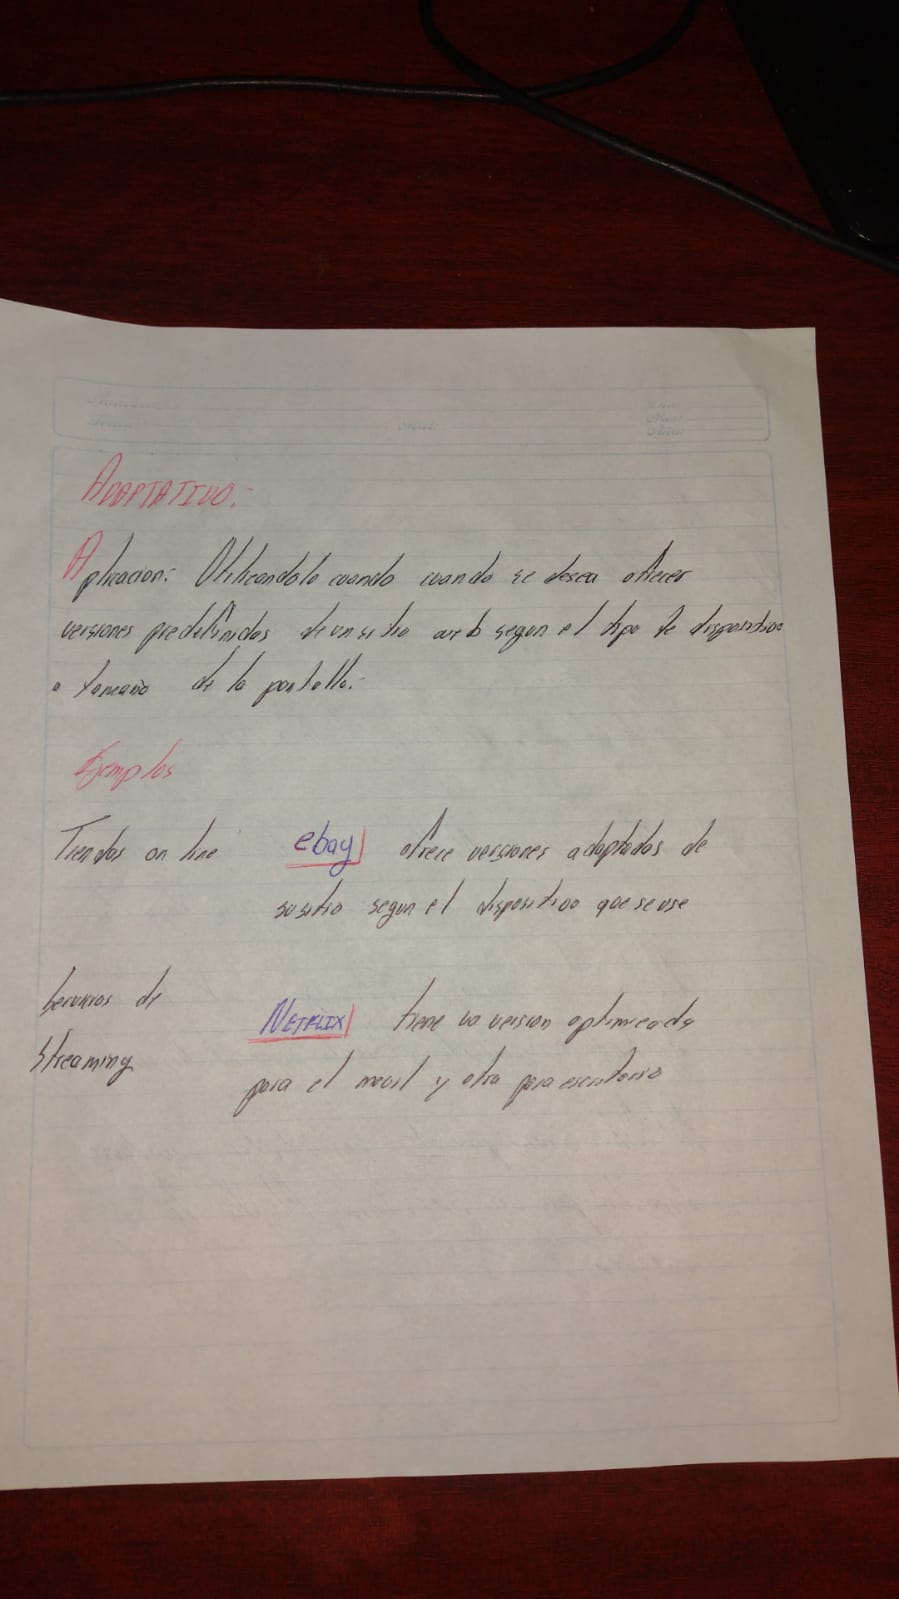 ADAPTATIVO:
Aplicacion: Utilicandolo cuando cuando se desea ofrecer
versiones predefinidas de un sitio web segun el tipo de dispositivo
o tamaño de la pantalla.
Ejemplos
Tiendas on line ebay ofrece versiones adaptadas de
su sitio segun el dispositivo que se use
Servicios de
Streaming
NETFLIX tiene una version optimizada
para el movil y otra para escritorio